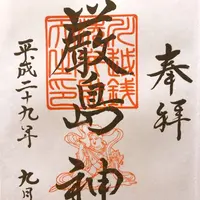 奉拝
厳島神
平成二十九年 九月